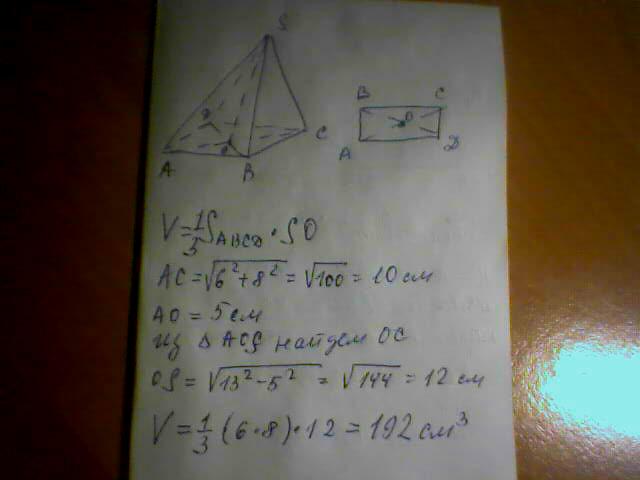 S
A B C D O
B C
O
A D
V = 1/3 S_ABCD · SO
AC = √6² + 8² = √100 = 10 см
AO = 5 см
Из △ AOS найдем ОС
OS = √13² - 5² = √144 = 12 см
V = 1/3 (6 · 8) · 12 = 192 см³